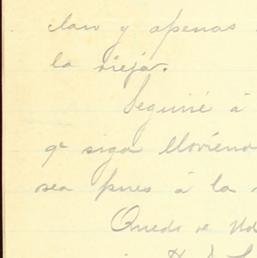 clan y apenas
la vieja.
Seguiré á
qe siga lloviendo
sea pues á la
Quedo de Vd